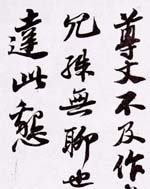 尊文不及作
兄殊無聊也
達此懇